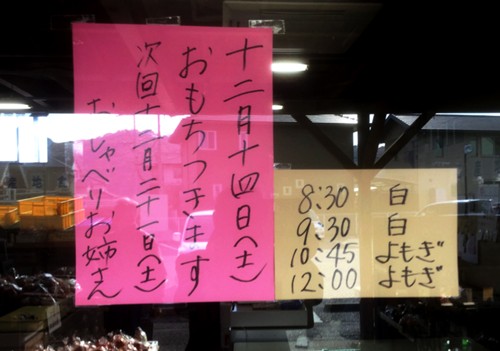 十二月十四日(土)
おもちつきます
次回十二月二十一日(土)
おしゃべりお姉さん
8:30 白
9:30 白
10:45 よもぎ
12:00 よもぎ